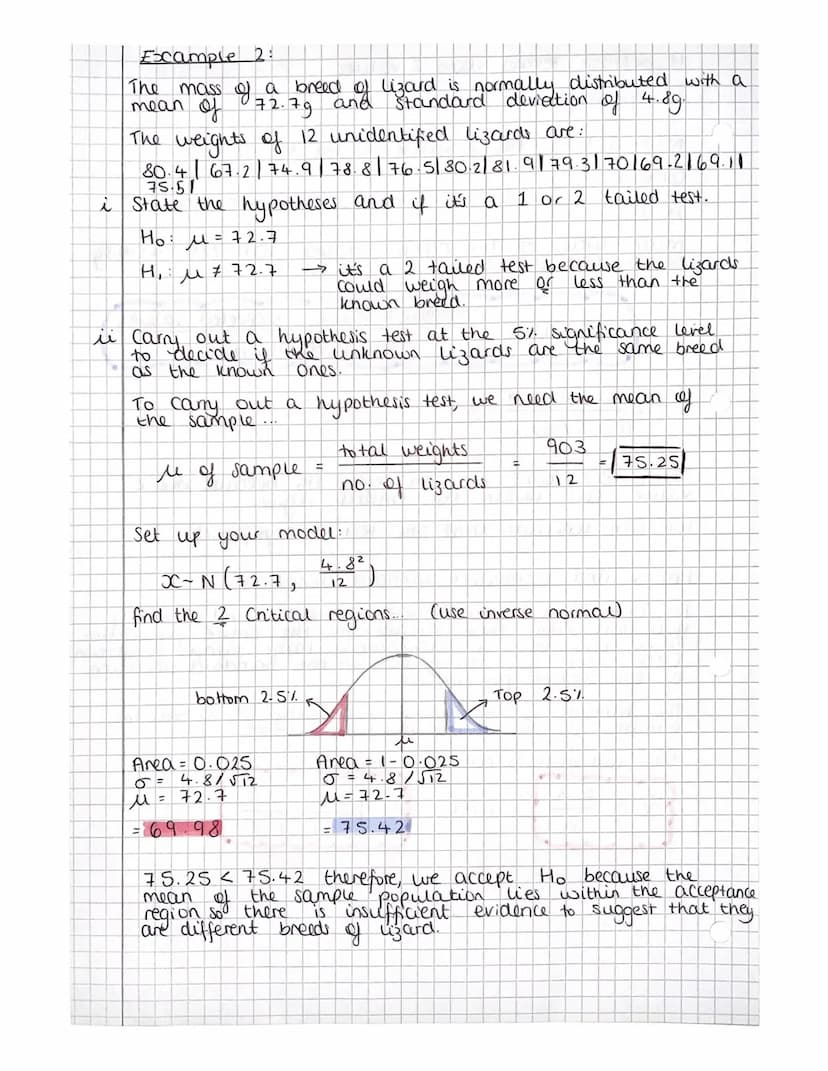 Example 2:
The mass of a breed of lizard is normally distributed with a
mean of 72.7g and standard deviation of 4.8g.
The weights of 12 unidentifed lizards are:
80.4 | 67.2 | 74.9 | 78.8 | 76.5 | 80.2 | 81.9 | 79.3 | 70 | 69.2 | 69.1 |
75.5 |
i State the hypotheses and if it's a 1 or 2 tailed test.
H₀: μ = 72.7
H₁: μ ≠ 72.7 → it's a 2 tailed test because the lizards
could weigh more or less than the
known breed.
ii Carry out a hypothesis test at the 5% significance level
to decide if the unknown lizards are the same breed
as the known ones.
To carry out a hypothesis test, we need the mean of
the sample...
μ of sample = total weights / no. of lizards = 903 / 12 = 75.25
Set up your model:
x ~ N(72.7, 4.8² / 12)
find the 2 critical regions... (use inverse normal)
bottom 2.5% Top 2.5%
μ
Area = 0.025 Area = 1 - 0.025
σ = 4.8/√12 σ = 4.8/√12
μ = 72.7 μ = 72.7
= 69.98 = 75.42
75.25 < 75.42 therefore, we accept H₀ because the
mean of the sample population lies within the acceptance
region so there is insufficient evidence to suggest that they
are different breeds of lizard.